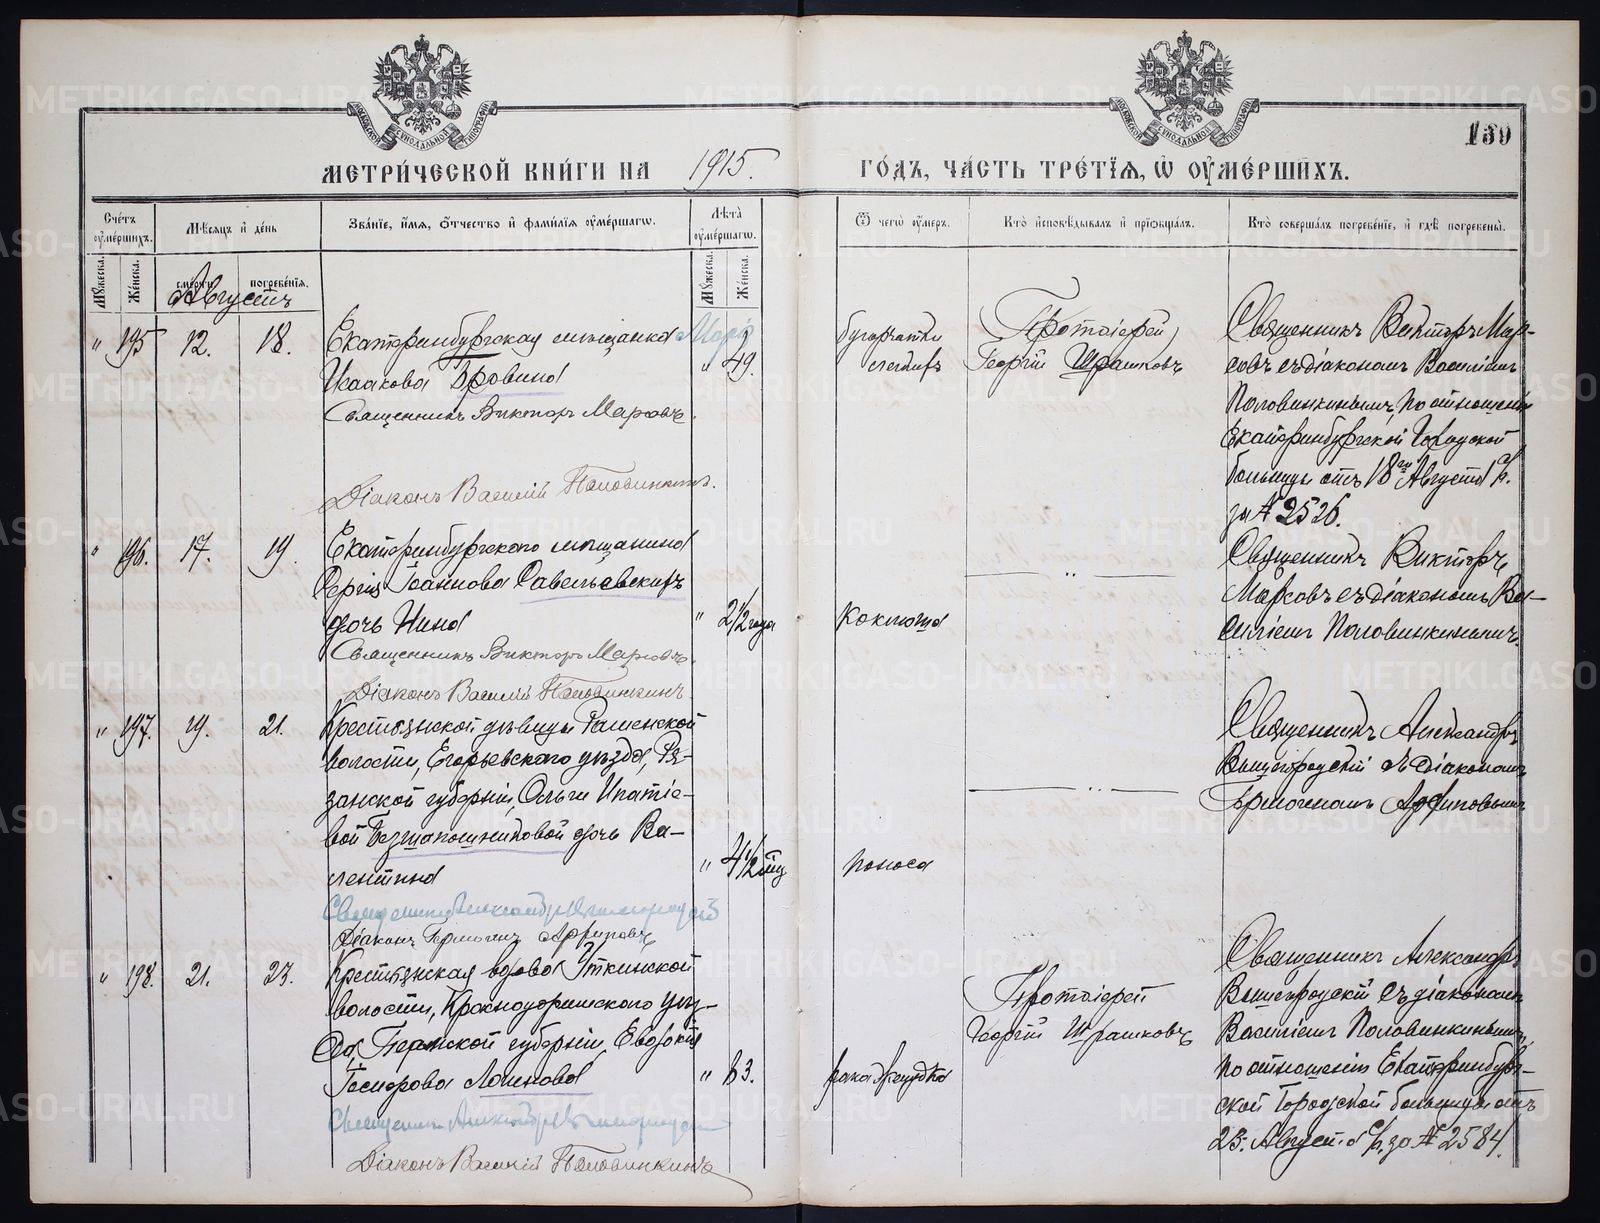 139
МЕТРИ́ЧЕСКОЙ КНИ́ГИ НА 1915. ГО́ДЪ, ЧА́СТЬ ТРЕ́ТЇЯ, Ѡ ОУ҆МЕ́РШИХЪ.
Сче́тъ оу҆ме́ршихъ.
Мѣсяцъ и҆ де́нь
Зва́нїе, и҆́мя, ѻ҆́тчество и҆ фами́лїя оу҆ме́ршагѡ.
Лѣта̀ оу҆ме́ршагѡ.
Ѿ чегѡ̀ оу҆́меръ.
Кто̀ и҆сповѣ́дывалъ и҆ прїѡбща́лъ.
Кто̀ соверша́лъ погребе́нїе, и҆ гдѣ̀ погребены̀.
Мꙋ́жеска.
Же́нска.
сме́рти
погребе́нїя.
Мꙋ́жеска.
Же́нска.
Августъ
" 195 12. 18.
Екатеринбургская мѣщанка Марія
Исаакова Бровина
" 49.
Священникъ Викторъ Марковъ.
Діаконъ Василій Половинкинъ.
бугорчатки
легкихъ
Протоіерей
Георгій Шрамковъ
Священникъ Викторъ Мар-
ковъ съ діакономъ Василіемъ
Половинкинымъ, по отношенію
Екатеринбургской Городской
больницы отъ 18го Августа с/г.
за № 2526.
" 196. 17. 19.
Екатеринбургскаго мѣщанина
Сергія Іоаннова Савельевскихъ
дочь Нина
" 2½ года
Священникъ Викторъ Марковъ.
Діаконъ Василій Половинкинъ.
коклюша
— " —
Священникъ Викторъ
Марковъ съ діакономъ Ва-
силіемъ Половинкинымъ.
" 197. 19. 21.
Крестьянской дѣвицы Раменской
волости, Егорьевскаго уѣзда, Ря-
занской губерніи, Ольги Ипатіе-
вой Безшапошниковой дочь Ва-
лентина
" 4½ мц
Священникъ Александръ Вышегродскій
Діаконъ Гермогенъ Архиповъ
поноса
— " —
Священникъ Александръ
Вышегродскій съ діакономъ
Гермогеномъ Архиповымъ
" 198. 21. 23.
Крестьянская вдова Уткинской
волости, Красноуфимскаго уѣз-
да, Пермской губерніи Евдокія
" 63.
Священникъ Александръ Вышегродскій
Діаконъ Василій Половинкинъ
рака желудка
Протоіерей
Георгій Шрамковъ
Священникъ Александръ
Вышегродскій съ діакономъ
Василіемъ Половинкинымъ,
по отношенію Екатеринбург-
ской Городской больницы отъ
23. Августа с/г. за № 2584.
METRIKI.GASO-URAL.RU